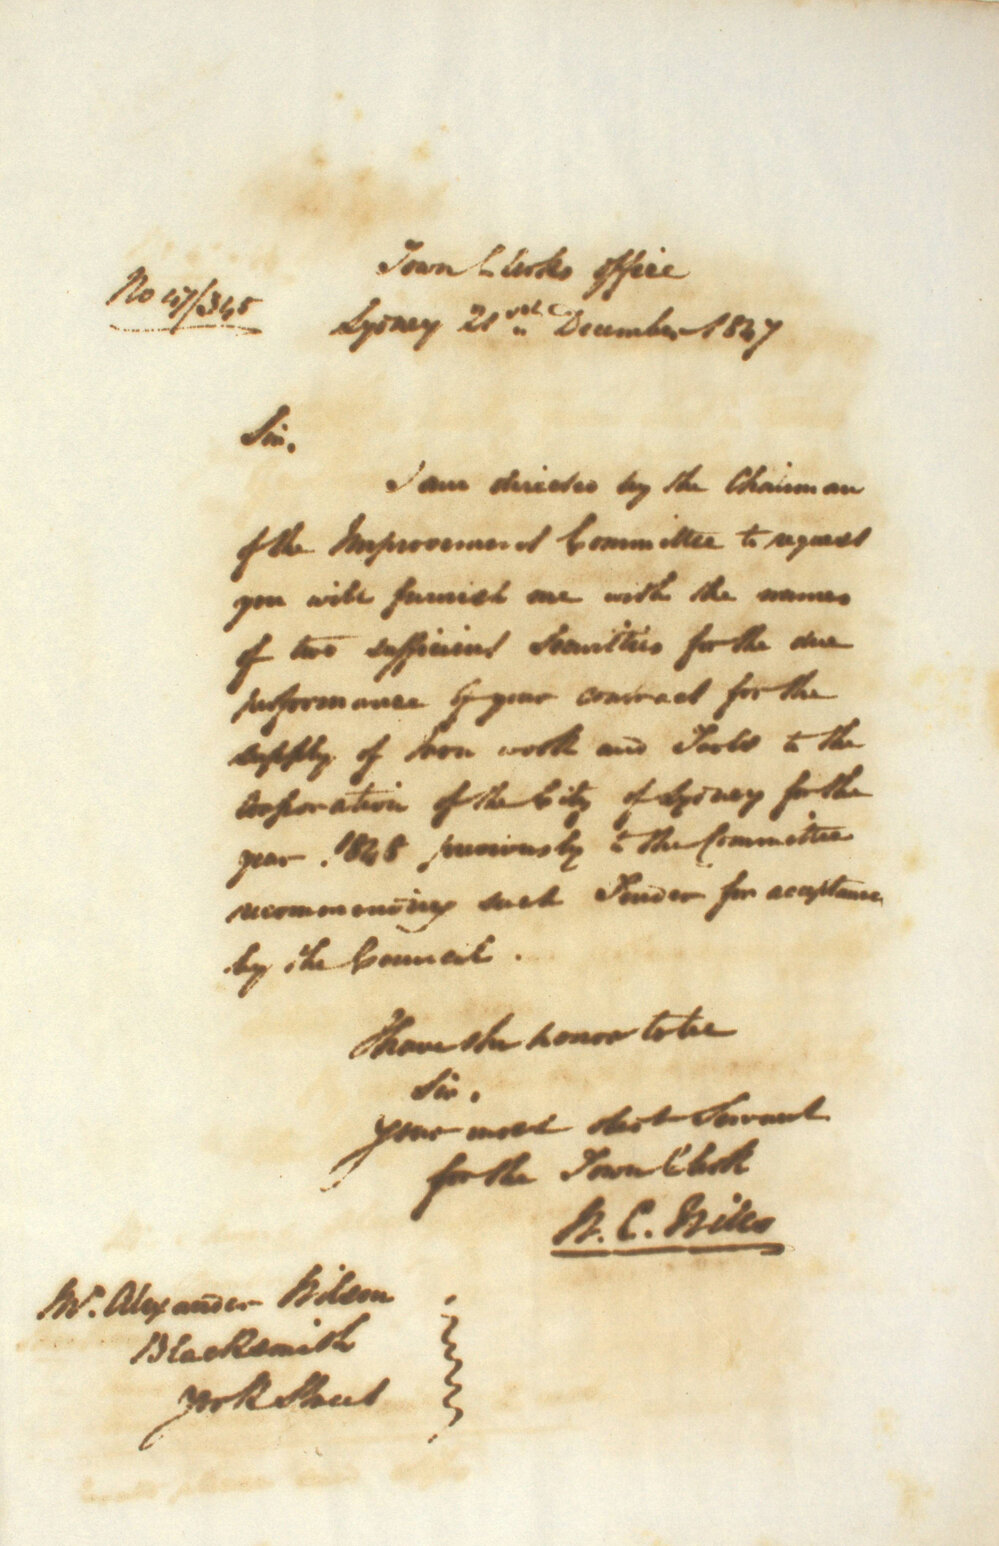 Town Clerks Office
No 47/345
Sydney 21st December 1847
Sir,
I am directed by the Chairman
of the Improvement Committee to request
you will furnish me with the names
of two sufficient Securities for the due
performance of your contract for the
supply of Iron work and Tools to the
Corporation of the City of Sydney for the
year 1848 previously to the Committee
recommending such Tender for acceptance
by the Council.
I have the honor to be
Sir,
Your most obet Servant
for the Town Clerk
W. C. Wills
Mr. Alexander Wilson
Blacksmith
York Street